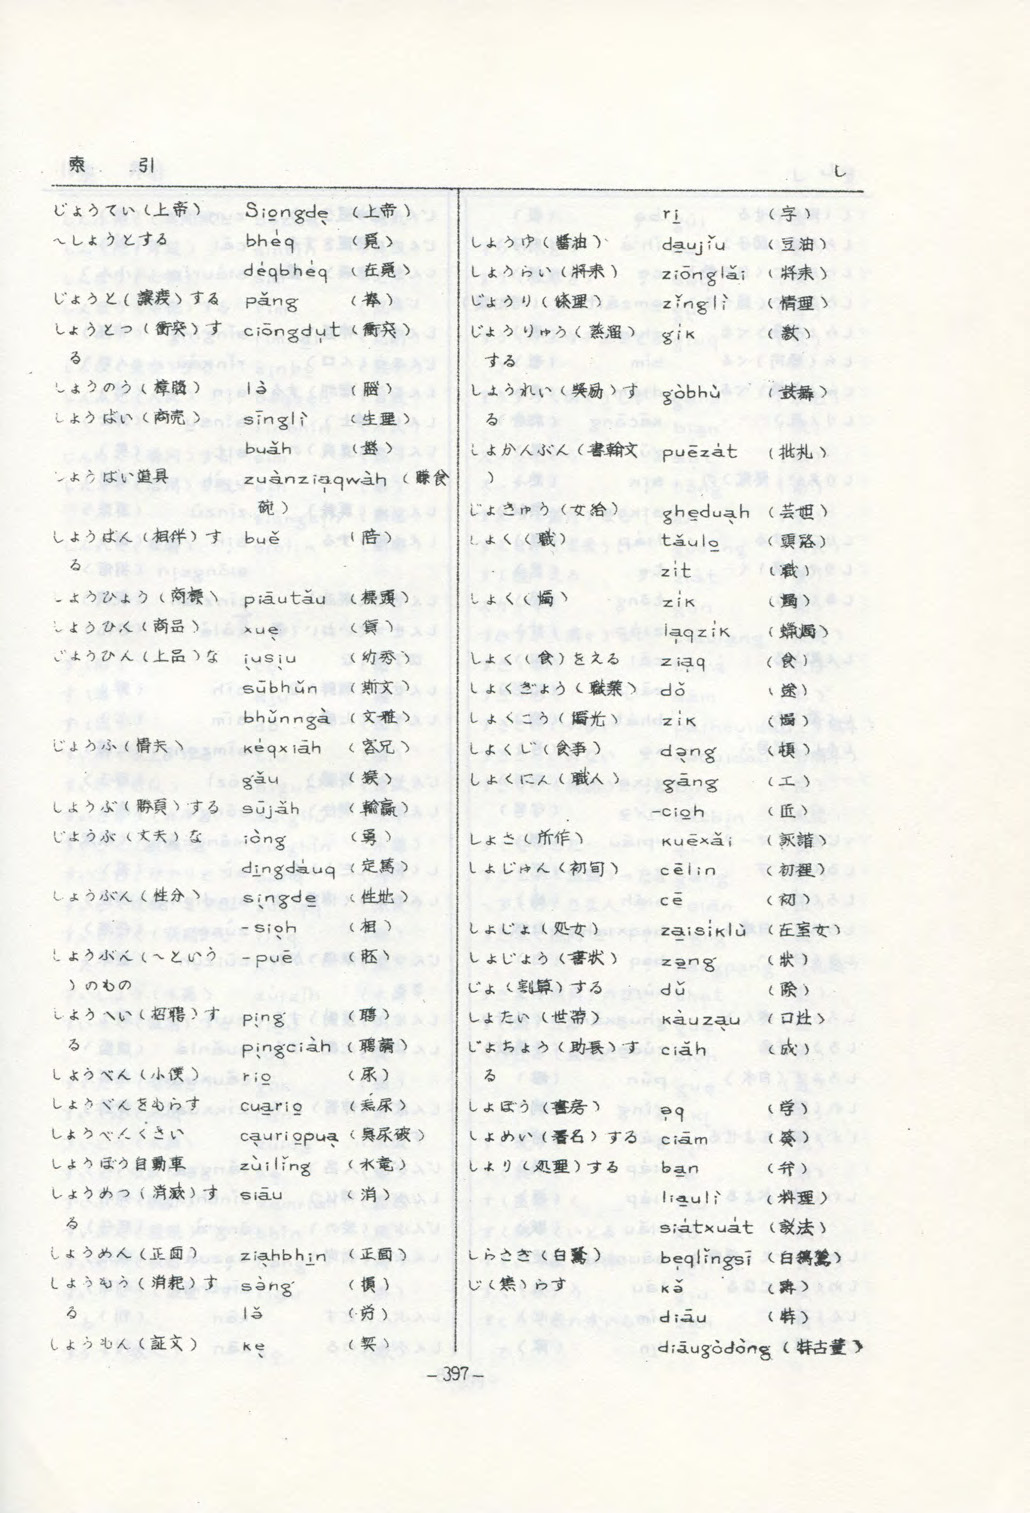 索 引
し
じょうてい(上帝) Siongde (上帝)
〜しようとする bhéq (覓)
déqbhéq (在覓)
じょうと(譲渡)する păng (捧)
しょうとつ(衝突)す ciōngdụt (衝突)
る
しょうのう(樟脳) lò (脳)
しょうばい(商売) sīnglì (生理)
buăh (盤)
しょうばい道具 zuànziạqwàh (賺食
碗)
しょうばん(相伴)す buě (陪)
る
しょうひょう(商標) piāutău (標頭)
しょうひん(商品) xuẹ (貨)
じょうひん(上品)な ịusịu (幼秀)
sūbhǔn (斯文)
bhǔnngà (文雅)
じょうふ(情夫) kéqxiāh (客兄)
gău (猴)
しょうぶ(勝負)する sūjăh (輸贏)
じょうぶ(丈夫)な iòng (勇)
dịngdáuq (定篤)
しょうぶん(性分) sịngde (性地)
-siọh (相)
しょうぶん(〜という -puē (胚)
)のもの
しょうへい(招聘)す pịng (聘)
る pịngciàh (聘請)
しょうべん(小便) rio̱ (尿)
しょうべんをもらす cua̱rio̱ (𤆬尿)
しょうべんくさい cạurio̱puạ (臭尿破)
しょうぼう自動車 zùilǐng (水竜)
しょうめつ(消滅)す siāu (消)
る
しょうめん(正面) ziạhbhi̱n (正面)
しょうもう(消耗)す sàng (損)
る lă (労)
しょうもん(証文) kẹ (契)
ri̱ (字)
しょうゆ(醤油) da̱ujǐu (豆油)
しょうらい(将来) ziōnglăi (将来)
じょうり(条理) zǐnglì (情理)
じょうりゅう(蒸溜) gík
する
しょうれい(奨励)す gòbhù (鼓舞)
る
しょかんぶん(書翰文 puēzát (批札)
)
じょきゅう(女給) ghe̱duạh (芸妲)
しょく(職) tăulo̱ (頭路)
zít (職)
しょく(燭) zík (燭)
la̱qzík (蝋燭)
しょく(食)をえる ziạq (食)
しょくぎょう(職業) dǒ (途)
しょくこう(燭光) zík (燭)
しょくじ(食事) dạng (頓)
しょくにん(職人) gāng (工)
-cio̱h (匠)
しょさ(所作) kuēxăi (詼諧)
しょじゅん(初旬) cēlin (初裡)
cē (初)
しょじょ(処女) za̱isíklù (在室女)
しょじょう(書状) za̱ng (状)
じょ(割算)する dǔ (除)
しょたい(世帯) kàuzạu (口灶)
じょちょう(助長)す ciăh (成)
る
しょぼう(書房) ạq (学)
しょめい(署名)する ciām (簽)
しょり(処理)する ba̱n (弁)
lia̱ulì (料理)
siátxuát (設法)
しらさぎ(白鷺) bẹqlǐngsī (白鴒鷥)
じ(焦)らす kǎ
diāu
diāugòdòng
-397-